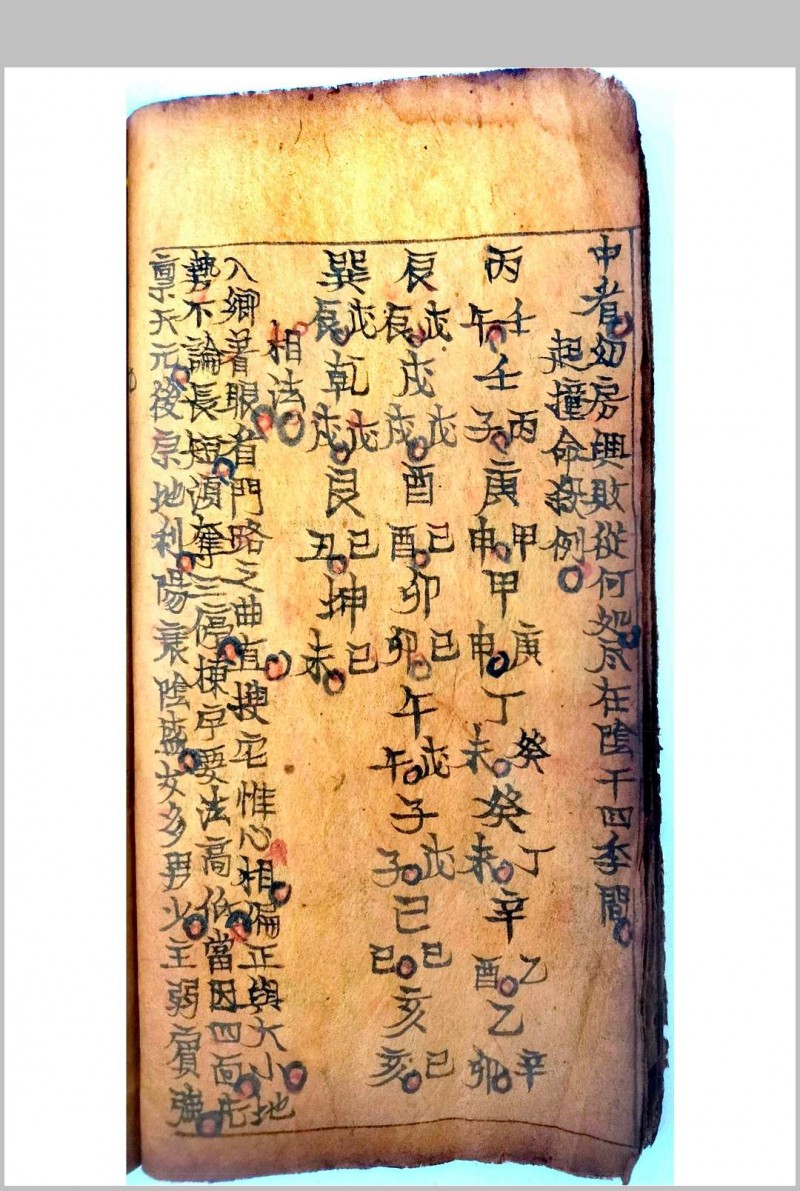 中者幼房興敗從何処凥在陰干四季間
起撞命殺例
丙壬午壬丙子庚甲申甲庚申丁癸未癸丁未辛乙酉乙辛卯
辰戊辰戌戊戌酉己酉卯己卯午戊午子戊子巳己巳亥己亥
巽戊辰乾戊戌艮己丑坤己未
相法
入鄉著眼看門路之曲直搜宅惟心相偏正與大小地
勢不論長短須奪三停棟宇要法高低當因四面先
禀天元後宗地利陽衰陰盛女多男少主弱賓強